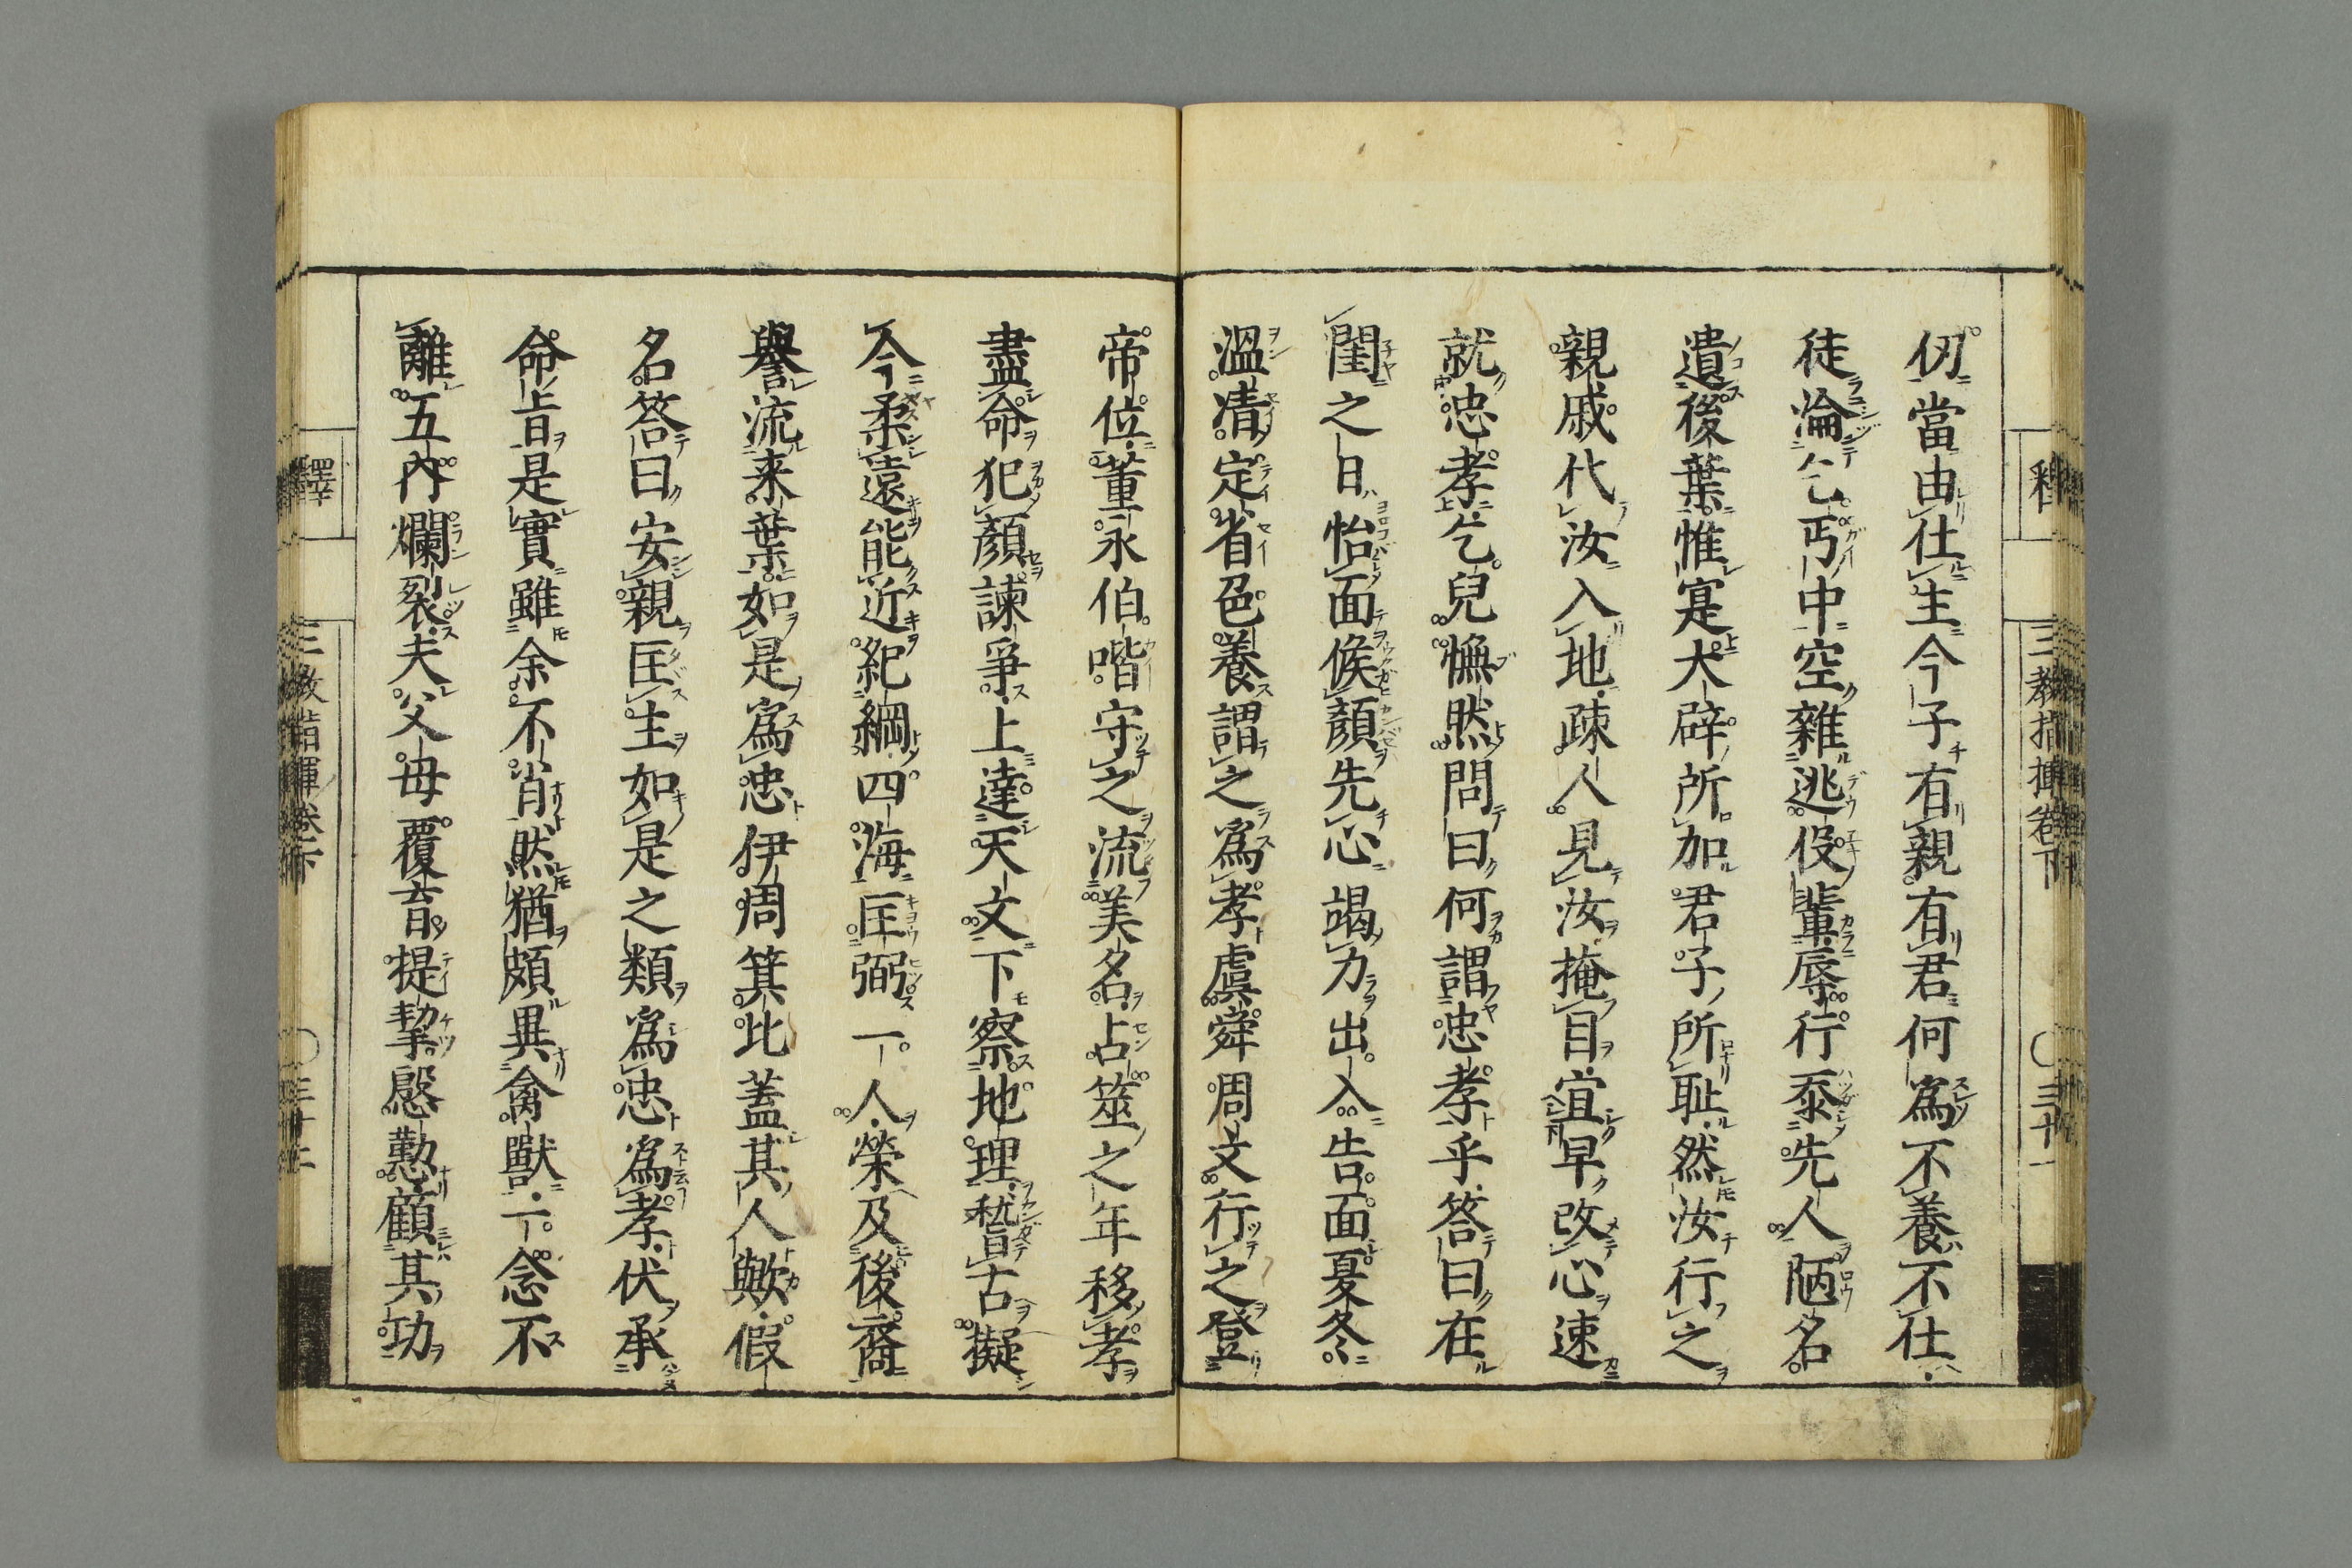 釋
三教指揮卷下
〇三十一
仞當由仕生今子有親有君何為不養不仕
徒淪乞丐中空雜逃役輩辱行忝先人陋名
遺後葉惟寔大辟所加君子所耻然汝行之
親戚代汝入地疎人見汝掩目宜早改心速
就忠孝乞兒憮然問曰何謂忠孝乎答曰在
閨之日怡面候顏先心竭力出入告面夏冬
溫凊定省色養謂之為孝虞舜周文行之登
帝位董永伯喈守之流美名占筮之年移孝
盡命犯顏諫爭上達天文下察地理稽古擬
今柔遠能近紀綱四海匡弼一人榮及後裔
譽流来葉如是為忠伊周箕比蓋其人歟假
名答曰安親匡主如是之類為忠為孝伏承
命旨是實雖余不肖然猶頗異禽獸一念不
離五內爛裂夫父母覆育提挈慇懃顧其功
釋
三教指揮卷下
〇三十二